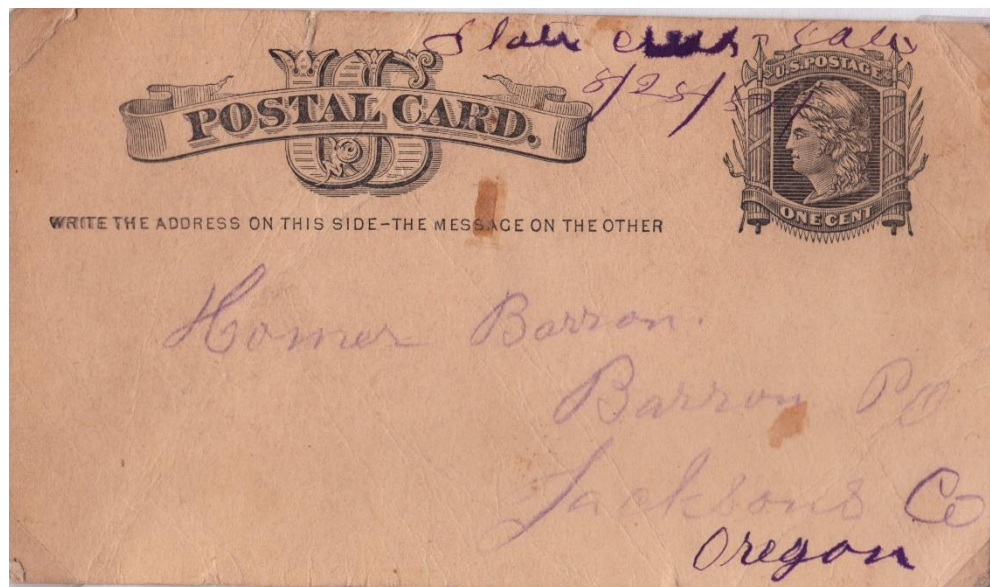 Slate Creek Cala
5/25/81
US
POSTAL CARD.
U.S. POSTAGE
ONE CENT
WRITE THE ADDRESS ON THIS SIDE–THE MESSAGE ON THE OTHER
Homer Barron.
Barron PO
Jacksons Co
Oregon